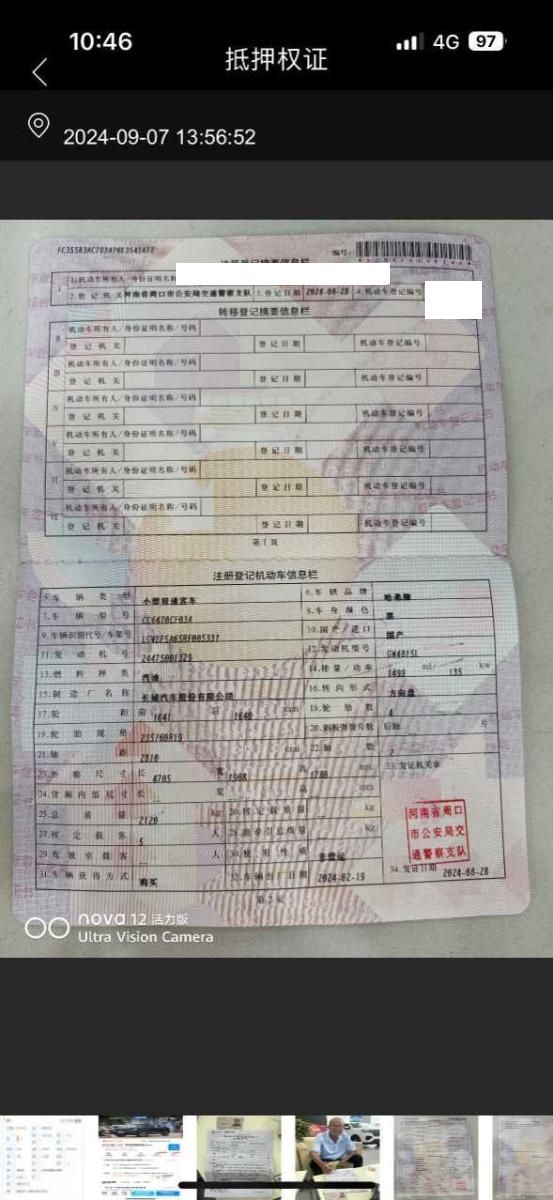 10:46
4G 97
抵押权证
2024-09-07 13:56:52
FC35583AC703A76E3545477
编号:
注册登记摘要信息栏
I 1.机动车所有人/身份证明名称
2.登记机关 河南省周口市公安局交通警察支队 3.登记日期 2024-08-28 4.机动车登记编号
转移登记摘要信息栏
II 机动车所有人/身份证明名称/号码
登记机关 登记日期 机动车登记编号
III 机动车所有人/身份证明名称/号码
登记机关 登记日期 机动车登记编号
IV 机动车所有人/身份证明名称/号码
登记机关 登记日期 机动车登记编号
V 机动车所有人/身份证明名称/号码
登记机关 登记日期 机动车登记编号
VI 机动车所有人/身份证明名称/号码
登记机关 登记日期 机动车登记编号
VII 机动车所有人/身份证明名称/号码
登记机关 登记日期 机动车登记编号
第1页
注册登记机动车信息栏
5.车辆类型 小型普通客车 6.车辆品牌 哈弗牌
7.车辆型号 CC6470CF03A 8.车身颜色 黑
9.车辆识别代号/车架号 10.国产/进口 国产
11.发动机号 12.发动机型号 GW4B15L
13.燃料种类 汽油 14.排量/功率 1499 ml/ 135 kw
15.制造厂名称 长城汽车股份有限公司 16.转向形式 方向盘
17.轮距 前 1641 后 1640 mm 18.轮胎数 4
19.轮胎规格 235/60R19 20.钢板弹簧片数 后轴 片
21.轴距 2810 mm 22.轴数 2
23.外廓尺寸 长 4705 宽 1908 高 1780 mm 33.发证机关章
24.货厢内部尺寸 长 宽 高 mm
25.总质量 2120 kg 26.核定载质量 kg
27.核定载客 5 人 28.准牵引总质量 kg
29.驾驶室载客 人 30.使用性质 非营运
31.车辆获得方式 购买 32.车辆出厂日期 2024-02-19
河南省周口
市公安局交
通警察支队
34.发证日期 2024-08-28
第2页
nova 12 活力版
Ultra Vision Camera